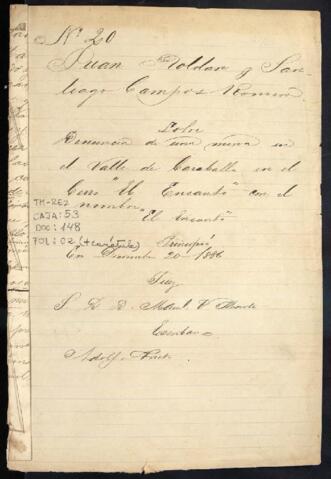 Nº 20
Juan Roldan y San-
tiago Campos Romero
Sobre
Denuncia de una mina en
el Valle de Caraballa en el
Cerro "El Encanto" con el
nombre
"El Encanto"
TM-RE2
CAJA: 53
DOC: 148
FOL: 02 (+carátula)
Principió
En Diciembre 20-1886
Juez
S. D. D. Manl. V.
Escribano
Adolfo Prieto